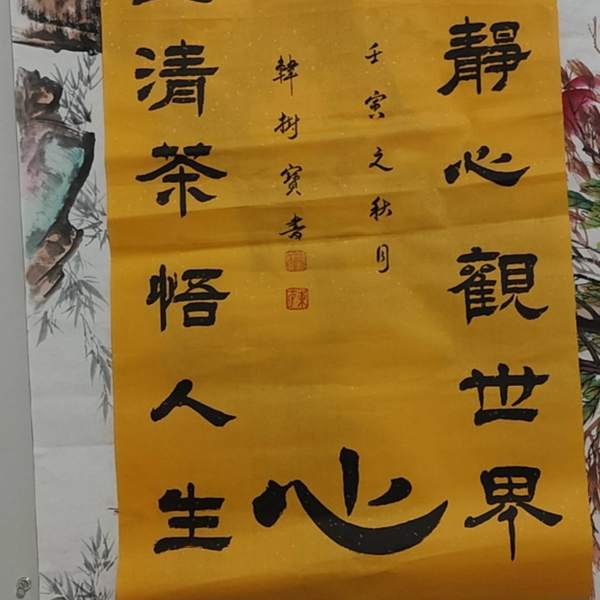 靜心觀世界
壬寅之秋月
韓樹寶書
心
清茶悟人生